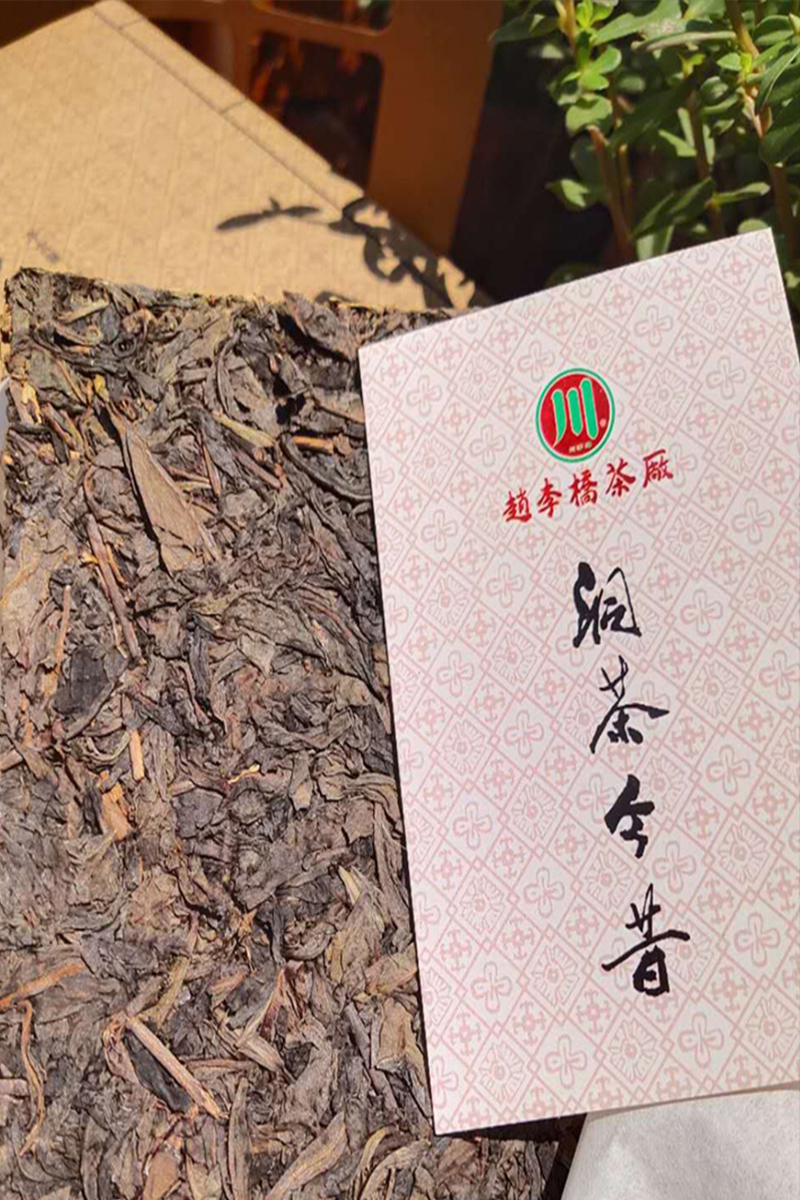 川
趙李橋茶廠
洞茶今昔